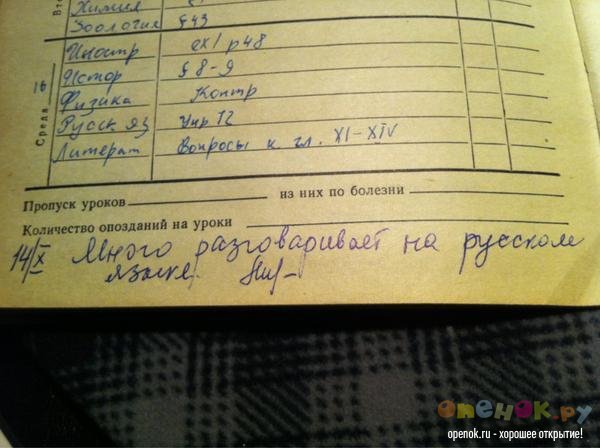 Химия
Зоология §43
Среда 16
Иностр ex1 p48
Истор § 8-9
Физика Контр
Русск яз Упр 12
Литерат Вопросы к гл. XI-XIV
Пропуск уроков из них по болезни
Количество опозданий на уроки
14/X Много разговаривает на русском
языке.
опенок.ру
openok.ru - хорошее открытие!